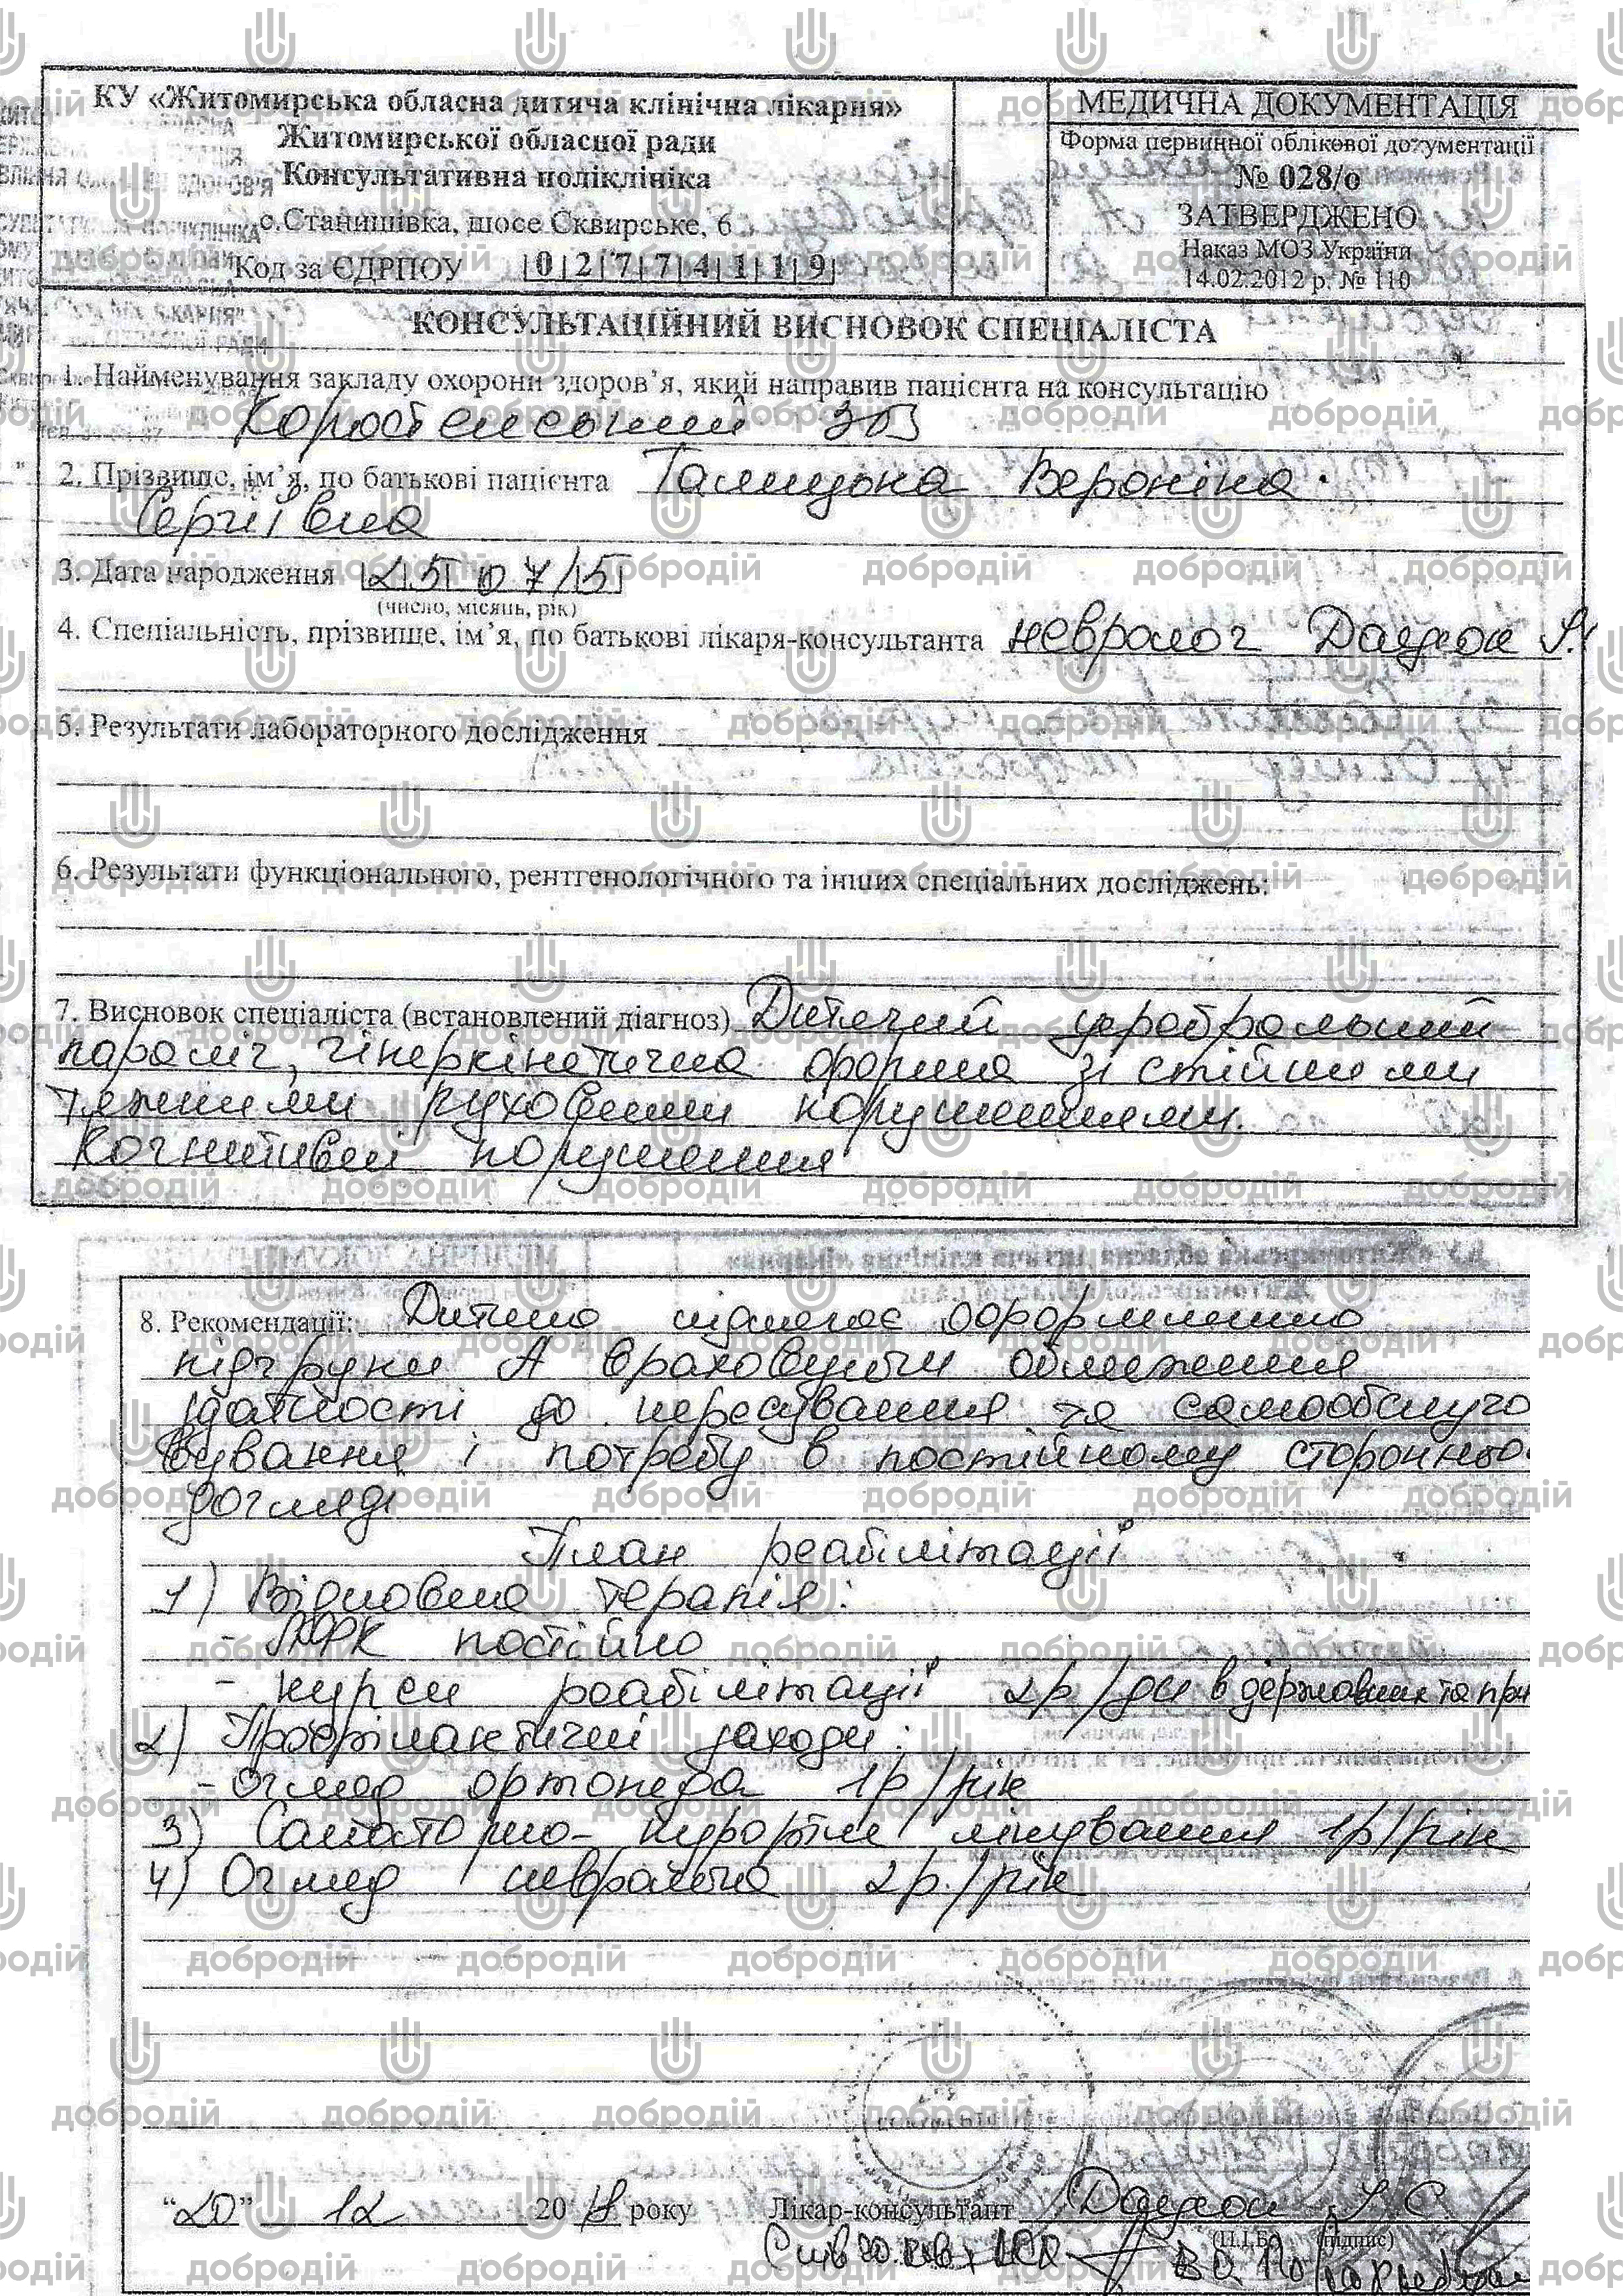 КУ «Житомирська обласна дитяча клінічна лікарня»
Житомирської обласної ради
Консультативна поліклініка
с.Станишівка, шосе Сквирське, 6
Код за ЄДРПОУ |0|2|7|7|4|1|1|9|
МЕДИЧНА ДОКУМЕНТАЦІЯ
Форма первинної облікової документації
№ 028/о
ЗАТВЕРДЖЕНО
Наказ МОЗ України
14.02.2012 р. № 110
КОНСУЛЬТАЦІЙНИЙ ВИСНОВОК СПЕЦІАЛІСТА
1. Найменування закладу охорони здоров’я, який направив пацієнта на консультацію
2. Прізвище, ім’я, по батькові пацієнта Вероніка
Сергіївна
3. Дата народження 25 07 15
(число, місяць, рік)
4. Спеціальність, прізвище, ім’я, по батькові лікаря-консультанта невролог
5. Результати лабораторного дослідження
6. Результати функціонального, рентгенологічного та інших спеціальних досліджень:
7. Висновок спеціаліста (встановлений діагноз) Дитячий церебральний
параліч, гіперкінетична форма зі стійкими
тяжкими руховими порушеннями.
Когнитивні порушення
8. Рекомендації: Дитина підлягає оформленню
підгрупи А враховуючи обмеження
здатності до пересування та самообслуго
вування і потребу в постійному сторонньо
догляді
План реабілітації
1) Відновна терапія:
- ЛФК постійно
- курси реабілітації 2р/рік в державних та при
2) Профілактичні заходи:
- Огляд ортопеда 1р/рік
3) Санаторно-курортне лікування 1р/рік
4) Огляд невролога 2р./рік
“20” 12 20 року Лікар-консультант
(П.І.Б.) (підпис)
добродій